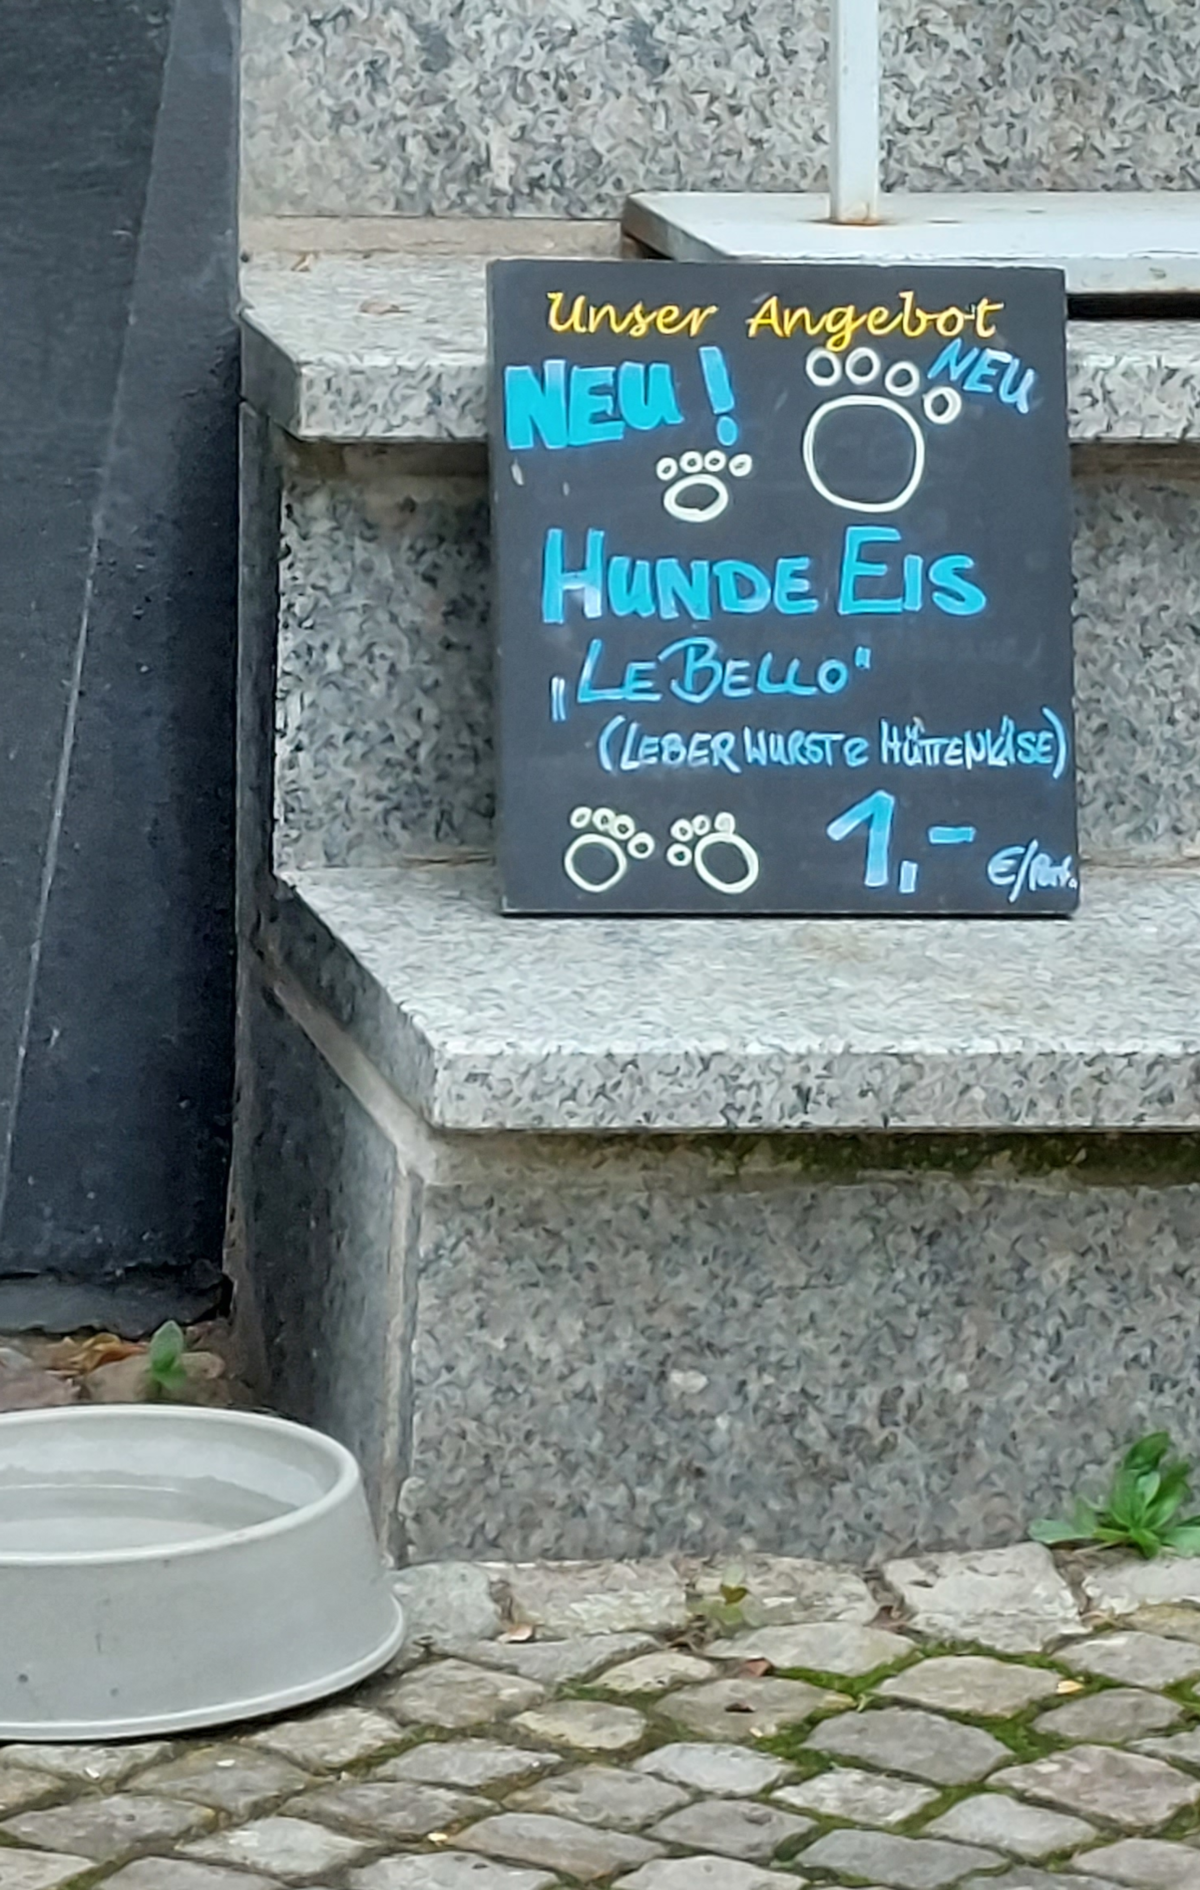 Unser Angebot
NEU!
NEU
HUNDE EIS
„LE BELLO“
(LEBERWURST & HÜTTENKÄSE)
1,- €/Port.